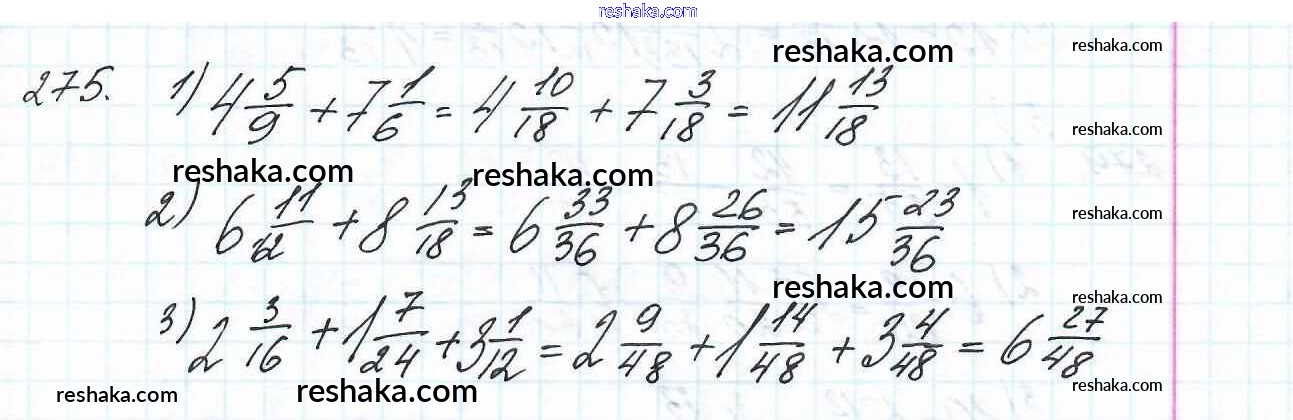 reshaka.com
reshaka.com reshaka.com
275. 1) 4 5/9 + 7 1/6 = 4 10/18 + 7 3/18 = 11 13/18
reshaka.com
reshaka.com reshaka.com
2) 6 11/12 + 8 13/18 = 6 33/36 + 8 26/36 = 15 23/36
reshaka.com
reshaka.com
reshaka.com
3) 2 3/16 + 1 7/24 + 3 1/12 = 2 9/48 + 1 14/48 + 3 4/48 = 6 27/48
reshaka.com reshaka.com reshaka.com